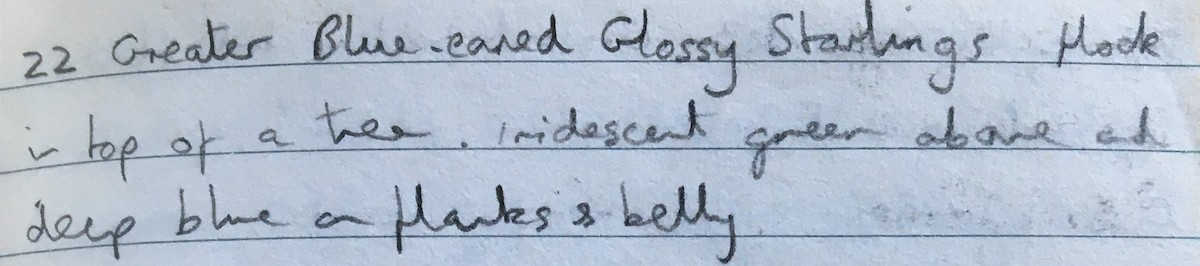 22 Greater Blue-eared Glossy Starlings flock
in top of a tree. iridescent green above and
deep blue on flanks & belly